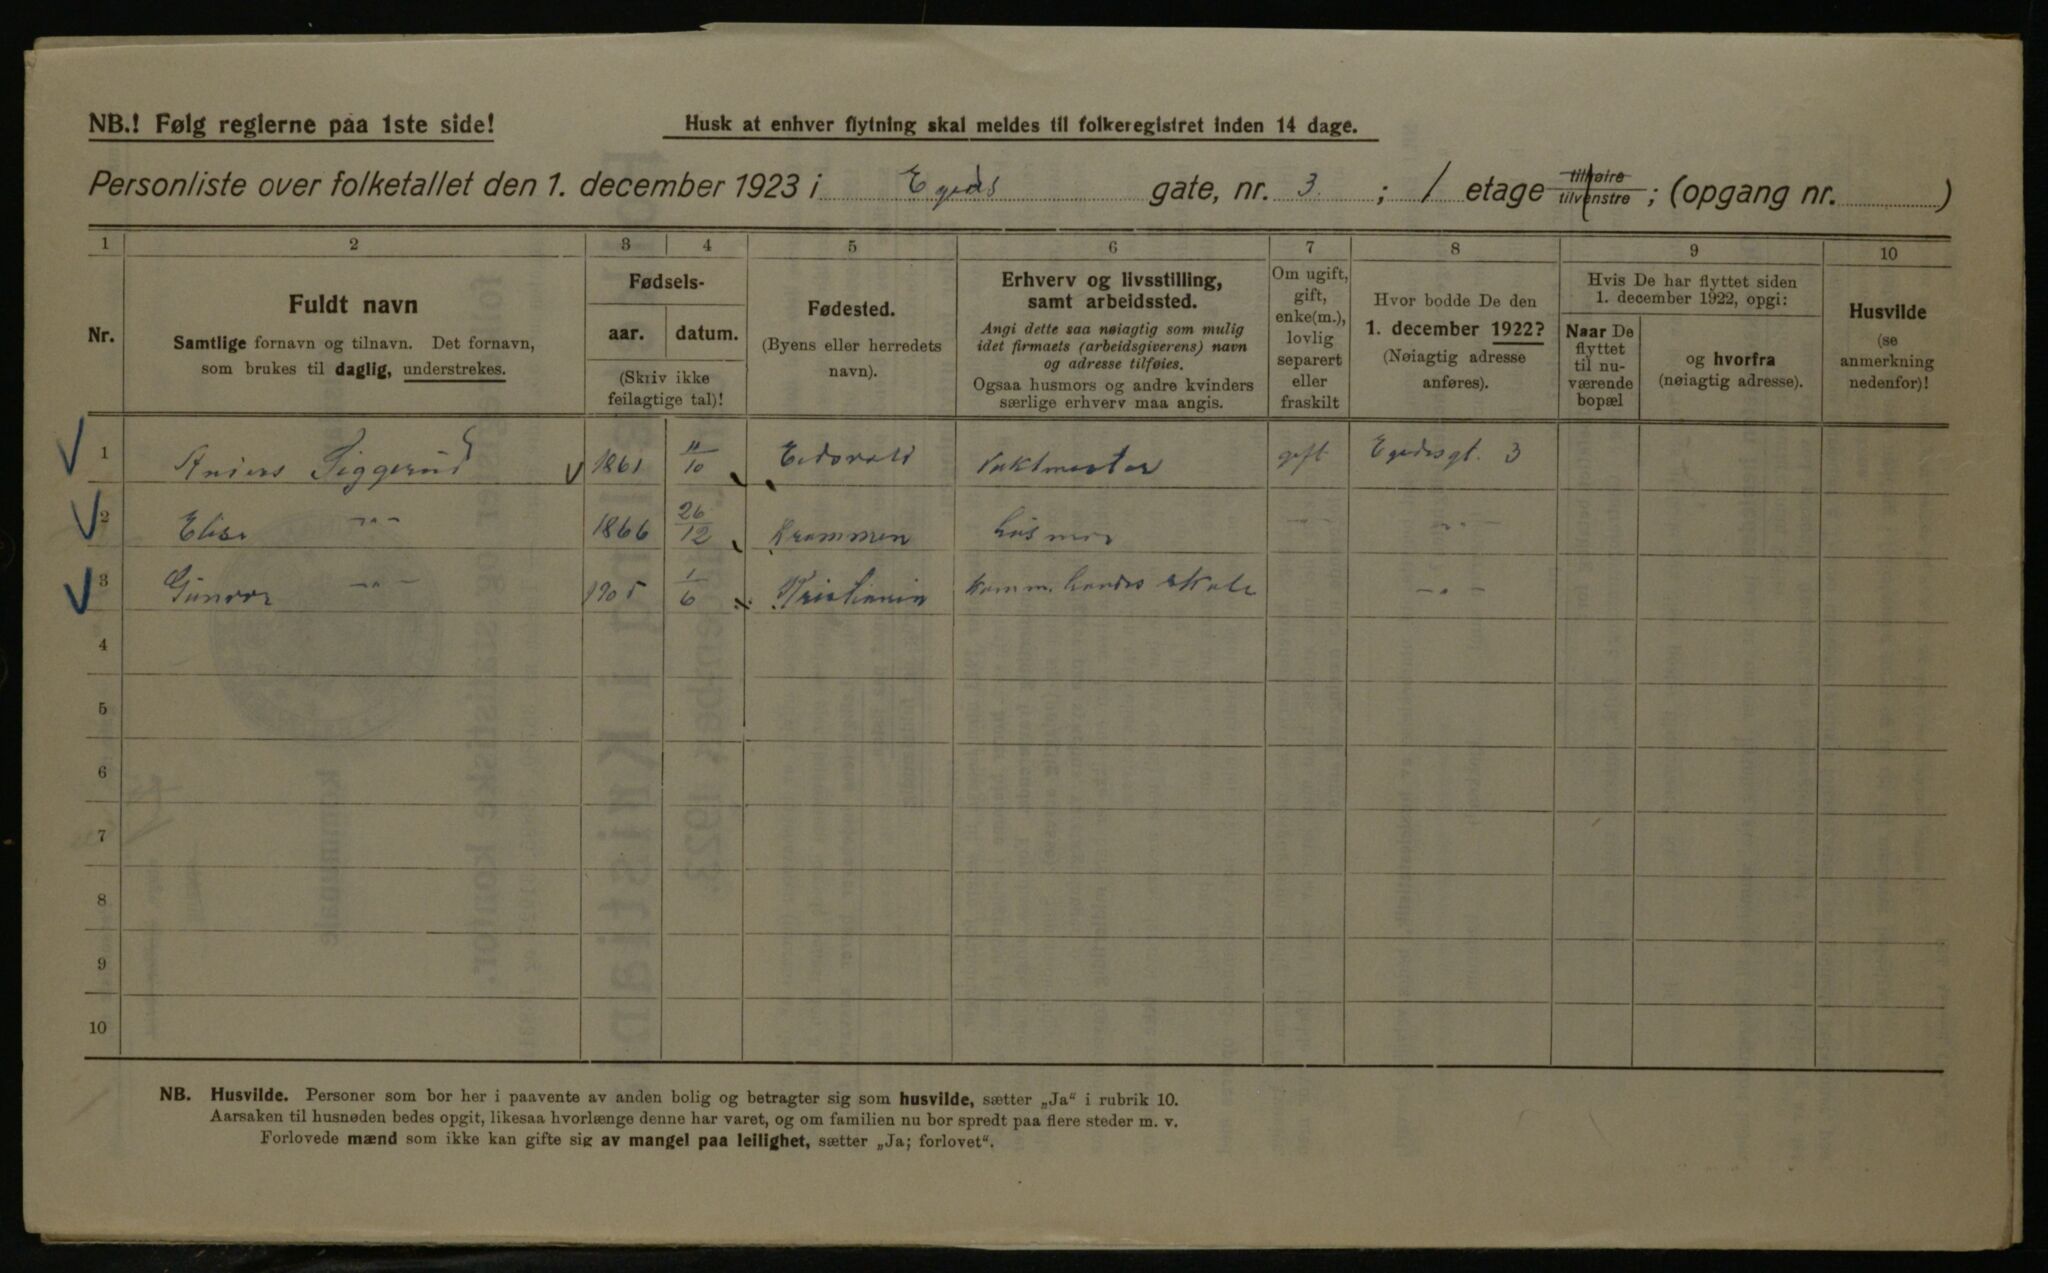 NB.! Følg reglerne paa 1ste side!
Husk at enhver flytning skal meldes til folkeregistret inden 14 dage.
Personliste over folketallet den 1. december 1923 i Egeds gate, nr. 3 ; 1 etage tilhøire tilvenstre ; (opgang nr. )
1 2 3 4 5 6 7 8 9 10
Nr.
Fuldt navn
Samtlige fornavn og tilnavn. Det fornavn,
som brukes til daglig, understrekes.
Fødsels-
aar. datum.
(Skriv ikke
feilagtige tal)!
Fødested.
(Byens eller herredets
navn).
Erhverv og livsstilling,
samt arbeidssted.
Angi dette saa nøiagtig som mulig
idet firmaets (arbeidsgiverens) navn
og adresse tilføies.
Ogsaa husmors og andre kvinders
særlige erhverv maa angis.
Om ugift,
gift,
enke(m.),
lovlig
separert
eller
fraskilt
Hvor bodde De den
1. december 1922?
(Nøiagtig adresse
anføres).
Hvis De har flyttet siden
1. december 1922, opgi:
Naar De
flyttet
til nu-
værende
bopæl
og hvorfra
(nøiagtig adresse).
Husvilde
(se
anmerkning
nedenfor)!
1 Anders Siggerud 1861 11/10 Eidsvold Vaktmester gift Egedesgt. 3
2 Elise -"- 1866 26/12 Drammen husmor -"- -"-
3 Gunvor -"- 1905 1/6 Kristiania Komm. handelsskole -"-
4
5
6
7
8
9
10
NB. Husvilde. Personer som bor her i paavente av anden bolig og betragter sig som husvilde, sætter „Ja“ i rubrik 10.
Aarsaken til husnøden bedes opgit, likesaa hvorlænge denne har varet, og om familien nu bor spredt paa flere steder m. v.
Forlovede mænd som ikke kan gifte sig av mangel paa leilighet, sætter „Ja; forlovet“.